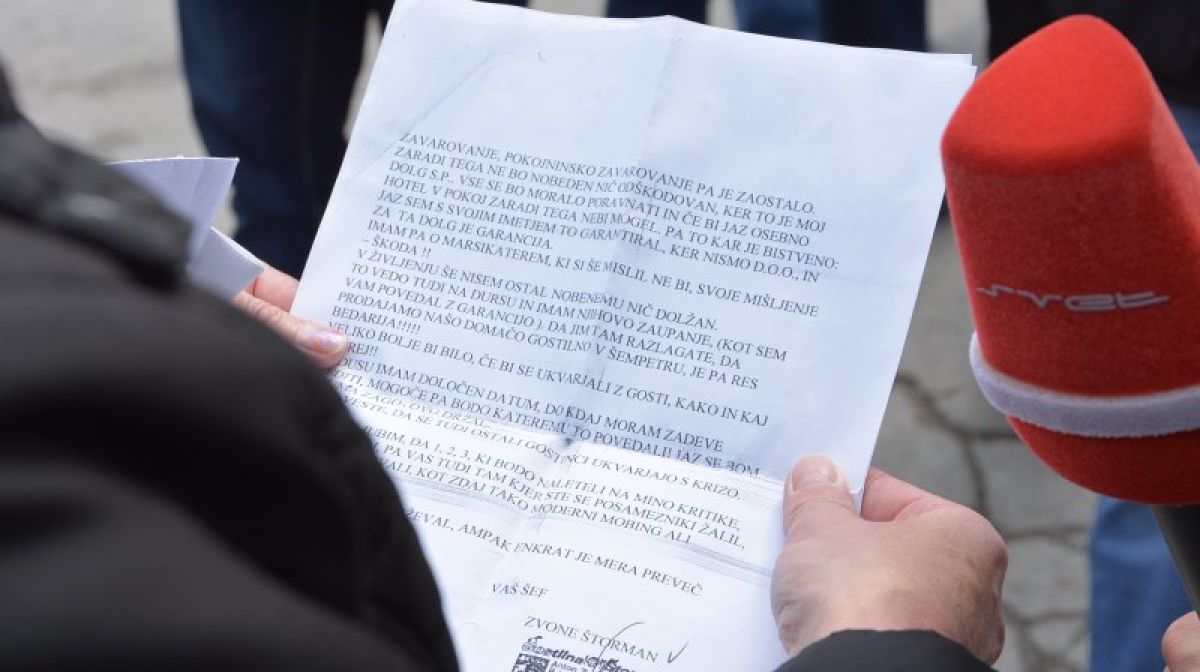 ZAVAROVANJE, POKOJNINSKO ZAVAROVANJE PA JE ZAOSTALO.
ZARADI TEGA NE BO NOBEDEN NIČ ODŠKODOVAN, KER TO JE MOJ
DOLG S.P.. VSE SE BO MORALO PORAVNATI IN ČE BI JAZ OSEBNO
HOTEL V POKOJ ZARADI TEGA NEBI MOGEL. PA TO KAR JE BISTVENO:
JAZ SEM S SVOJIM IMETJEM TO GARANTIRAL, KER NISMO D.O.O., IN
ZA TA DOLG JE GARANCIJA.
IMAM PA O MARSIKATEREM, KI SI ŠE MISLIL NE BI, SVOJE MIŠLJENJE
– ŠKODA !!
V ŽIVLJENJU ŠE NISEM OSTAL NOBENEMU NIČ DOLŽAN.
TO VEDO TUDI NA DURSU IN IMAM NJIHOVO ZAUPANJE, (KOT SEM
VAM POVEDAL Z GARANCIJO ). DA JIM TAM RAZLAGATE, DA
PRODAJAMO NAŠO DOMAČO GOSTILNO V ŠEMPETRU, JE PA RES
BEDARIJA!!!!!
VELIKO BOLJE BI BILO, ČE BI SE UKVARJALI Z GOSTI, KAKO IN KAJ
IMAM DOLOČEN DATUM, DO KDAJ MORAM ZADEVE
MOGOČE PA BODO KATEREMU TO POVEDALI! JAZ SE BOM
DRŽAL.
DA SE TUDI OSTALI GOSTINCI UKVARJAJO S KRIZO.
DA 1, 2, 3, KI BODO NALETELI NA MINO KRITIKE,
PA VAS TUDI TAM KJER STE SE POSAMEZNIKI ŽALIL,
KOT ZDAJ TAKO MODERNI MOBING ALI
AMPAK ENKRAT JE MERA PREVEČ
VAŠ ŠEF
ZVONE ŠTORMAN
svet